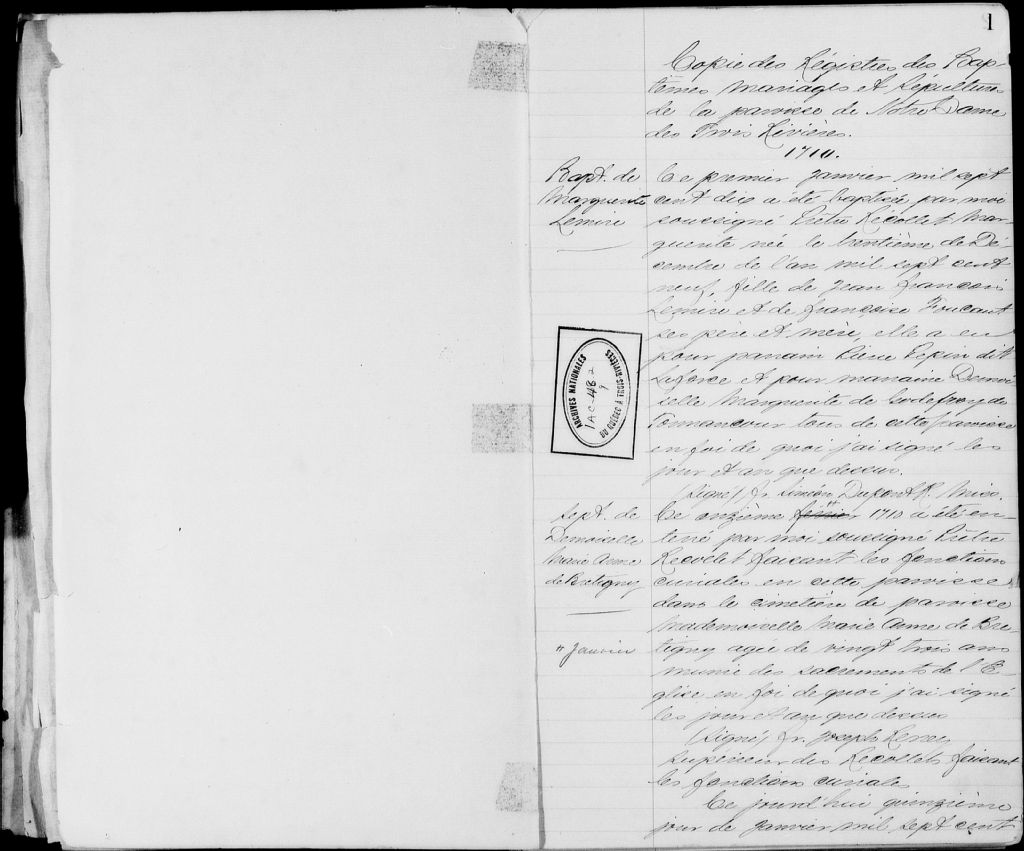 1
Copie des Régistres des Bap-
têmes mariages et Sépultures
de la paroisse de Notre Dame
des Trois Rivières.
1710.
Bapt. de
Marguerite
Lemire
Ce premier janvier mil sept
cent dix a été baptisée par moi
soussigné Prêtre Récollet Mar-
guerite née le trentième de Dé-
cembre de l'an mil sept cent
neuf, fille de Jean francois
Lemire et de françoise Foucaut
ses père et mère, elle a eu
pour parrain Pierre Pepin dit
Laforce et pour marraine Demoi-
selle Marguerite de Godefroy de
Tonnancour tous de cette paroisse
en foi de quoi j'ai signé les
jour et an que dessus.
(Signé) fr. Siméon Dupont R. Miss.
ARCHIVES NATIONALES
DU QUÉBEC À TROIS-RIVIÈRES
1 AC-482
9
Sept. de
Demoiselle
Marie Anne
de Bretigny
" Janvier
Ce onzième 1710 a été en-
terré par moi soussigné Prêtre
Recollet faisant les fonctions
curiales en cette paroisse
dans le cimetière de paroisse
Mademoiselle Marie Anne de Bre-
tigny agée de vingt trois ans
munie des sacrements de l'E-
glise en foi de quoi j'ai signé
les jour et an que dessus
(Signé) fr. Joseph
Supérieur des Recollets faisant
les fonctions curiales
Ce jourd'hui quinzième
jour de Janvier mil sept cent